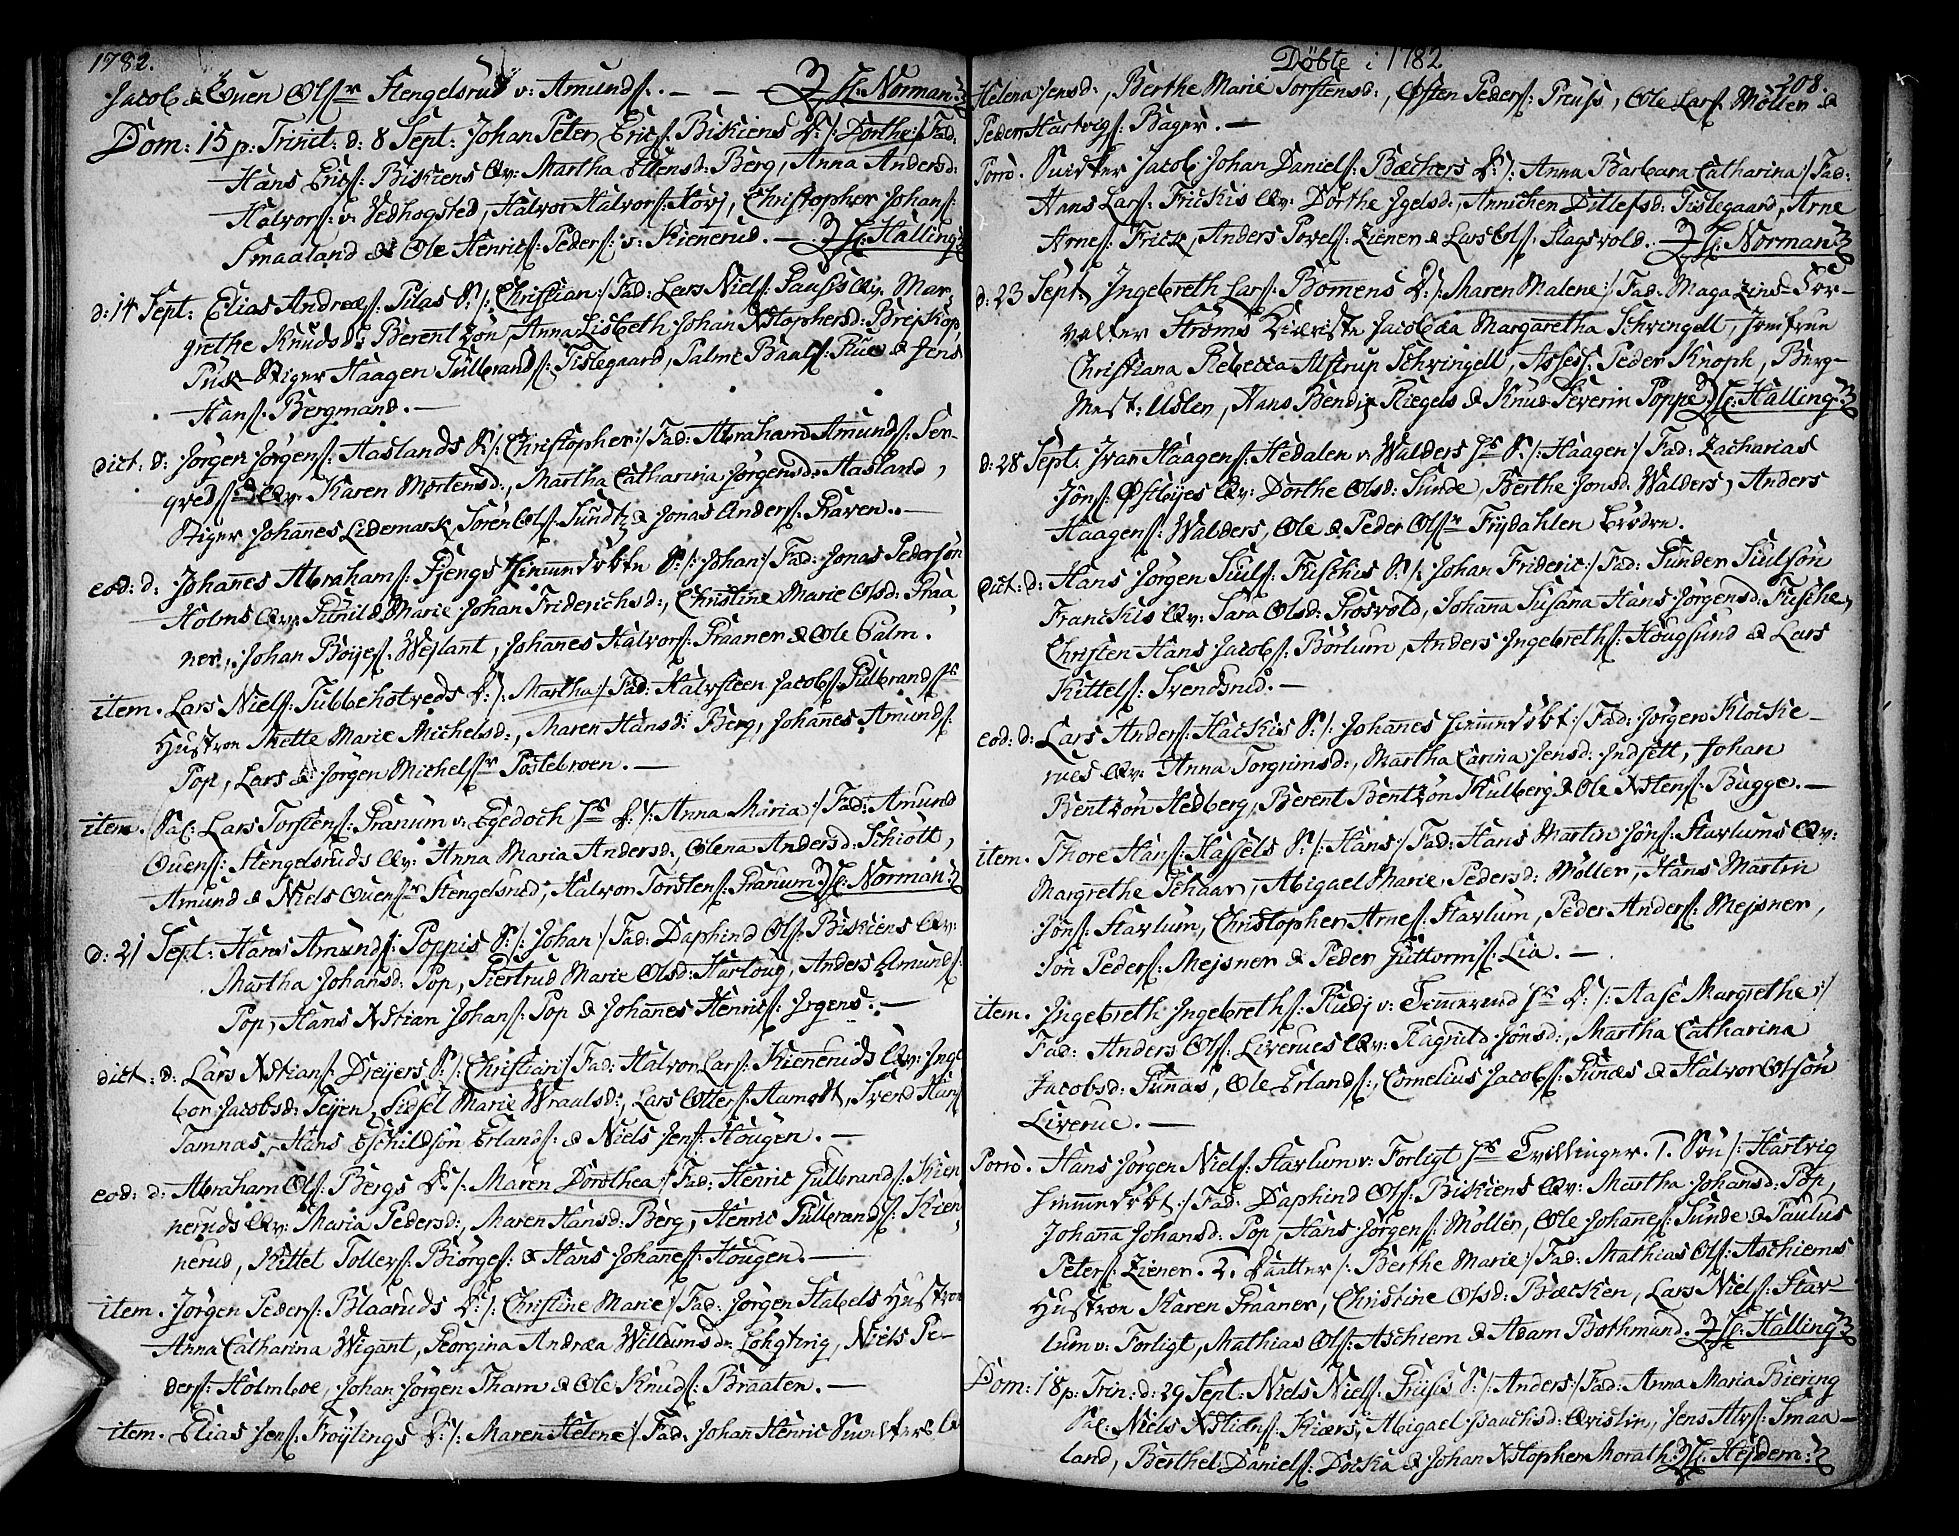 1782.
Jacob & Ouen Ols:r Stengelsrud v: Amunds:. — — H: Norman
Dom: 15 p: Trinit: d: 8 Sept: Johan Peter Erics: Biskiens D: /: Dorthe :/ Fad:
Hans Erics: Biskiens Qv: Martha Ellensd: Berg, Anna Andersd:
Halvors: v: Vedhogsted, Halvor Halvors: Hovj, Christopher Johans:
Smaaland & Ole Henrics: Peders: v: Kienerud. — H: Halling
d: 14 Sept: Elias Andreæs: Pilas S: /: Christian :/ Fad: Lars Niels: Pausis Qv: Mar-
grethe Knudsd: Berentzon, Anna Lisbeth Johan Xstophersd: Brejskop,
Puk-Stiger Haagen Gulbrands: Tislegaard, Palme Baals: Rue & Jens
Hans: Bergmand. —
dict: d: Jørgen Jørgens: Haslands S: /: Christopher :/ Fad: Abraham Amunds: Ser-
qveds Qv: Karen Mortensd:, Martha Catharina Jørgensd: Hasland,
Stiger Johanes Lidemark, Søren Ols: Sundt & Jonas Anders: Raven. —
eod: d: Johanes Abrahams: Fjengs Hiemmedøbte S: /: Johan :/ Fad: Jonas Pedersøn
Holms Qv: Gunild Marie Johan Friderichsd:, Christine Marie Olsd: Praa-
ner, Johan Böyes: Wejlant, Johanes Halvors: Praaner & Ole Palm.
item. Lars Niels: Tubbeholveds D: /: Martha :/ Fad: Halvsteen Jacobs: Gulbrands:s
Hustroe Mette Marie Michelsd:, Maren Hansd: Berg, Johanes Amunds:
Pop, Lars & Jørgen Michels:r Postebroen. —
item. Sal: Lars Torstens: Pranum v: Egedoch Hs D: /: Anna Maria :/ Fad: Amund
Ouens: Stengelsruds Qv: Anna Maria Andersd:, Olena Andersd: Schiött,
Amund & Niels Ouens:r Stengelsrud, Halvor Torstens: Pranum H: Norman
d: 21 Sept: Hans Amunds: Poppis S: /: Johan :/ Fad: Daphind Ols: Biskiens Qv:
Martha Johansd: Pop, Giertrud Marie Olsd: Hartoug, Anders Amunds:
Pop, Hans Xstian Johans: Pop & Johanes Henrics: Jrgens. —
dict: d: Lars Xstians: Drejers S: /: Christian :/ Fad: Halvor Lars: Kieneruds Qv: Inge-
bor Jacobsd: Tejen, Sidsel Marie Wraalsd:, Lars Otters: Aamodt, Svend Hans:
Tamnæs, Hans Eschildsøn Erlands: & Niels Jens: Hougen. —
eod: d: Abraham Ols: Bergs D: /: Maren Dorothea :/ Fad: Henric Gulbrands: Kien-
neruds Qv: Maria Pedersd:, Maren Hansd: Berg, Henric Gulbrands: Kien-
nerud, Kittel Tollefs: Biörges: & Hans Johanes: Hougen. —
item. Jørgen Peders: Blaaruds D: /: Christine Marie :/ Fad: Jørgen Habels Hustroe
Anna Catharina Wigant, Georgina Andræa Willumsd: Løhgtvig, Niels Pe-
ders: Holmboe, Johan Jørgen Tham & Ole Knuds: Braaten. —
item. Elias Jens: Frøylings D: /: Maren Helene :/ Fad: Johan Henric Snedkers Qv
Døbte i 1782
208.
Helena Jensd:, Berthe Marie Torstensd:, Østen Peders: Preuss, Ole Lars: Møller &
Peder Hartvigs: Bager. —
Porro. Snidker Jacob Johan Daniels: Bæchers D: /: Anna Barbara Catharina :/ Fad:
Hans Lars: Frickis Qv: Dorthe Igelsd:, Annichen Ditlefsd: Tislegaard, Arne
Arnes: Frick, Anders Povels: Ziener & Lars Ols: Slagsvold. — H: Norman
d: 23 Sept: Ingebreth Lars: Bomens D: /: Maren Malene :/ Fad: Magazins-For-
valter Strøms Kiæriste Jacobæa Margaretha Schvingell, Jomfrue
Christiana Rebecca Alstrup Schvingell, Assess: Peder Knoph, Berg-
Mest: Uslen, Hans Bendix Riegels & Knud Severin Poppe H: Halling
d: 28 Sept: Ivar Haagens: Hedalen v: Walders Hs S: /: Haagen :/ Fad: Zacharias
Jöns: Østbyes Qv: Dorthe Olsd: Sunde, Berthe Jonsd: Walders, Anders
Haagens: Walders, Ole & Peder Ols:r Frydahlen Brødre.
dict: d: Hans Jørgen Juuls: Fuschis S: /: Johan Frideric :/ Fad: Gunder Juulsøn
Franckis Qv: Sara Olsd: Prosvold, Johana Susana Hans Jørgensd: Fusche,
Christen Hans Jacobs: Børlum, Anders Ingebreths: Hougsund & Lars
Kittels: Svendsrud. —
eod: d: Lars Anders: Hackis S: /: Johanes hiemmedøbt :/ Fad: Jørgen Klocke-
rues Qv: Anna Torgrimsd:, Martha Carina Jensd: Indsett, Johan
Bentzøn Hedberg, Berent Bentzøn Kulberg & Ole Xstens: Bugge. —
item. Thore Hans: Hassels S: /: Hans :/ Fad: Hans Martin Jøns: Starlums Qv:
Margrethe Schaar, Abigael Marie Pedersd: Møller, Hans Martin
Jøns: Starlum, Christopher Arnes: Starlum, Peder Anders: Mejsner,
Jon Peders: Mejsner & Peder Guttorms: Lia. —
item. Ingebreth Ingebreths: Rudj v: Temmerud Hs D: /: Aase Margrethe :/
Fad: Anders Ols: Liverues Qv: Ragnild Jonsd:, Martha Catharina
Jacobsd: Funæs, Ole Erlands:, Cornelius Jacobs: Funæs & Halvor Olsøn
Liverue. —
Porro. Hans Jørgen Niels: Starlum v: Forligt Hs Tvillinger. 1. Søn /: Hartvig
hiemmedøbt :/ Fad: Daphind Ols: Biskiens Qv: Martha Johansd: Pop,
Johana Johansd: Pop, Hans Jørgens: Møller, Ole Johanes: Sunde & Paulus
Peters: Ziener. 2. Daatter /: Berthe Marie :/ Fad: Mathias Ols: Aschiems
Hustroe Karen Praaner, Christine Olsd: Bæcken, Lars Niels: Star-
lum v: Forligt, Mathias Ols: Aschiem & Adam Bothmund. H: Halling
Dom: 18 p: Trin: d: 29 Sept: Niels Niels: Friisis S: /: Anders :/ Fad: Anna Maria Biering
Sal: Niels Xstians: Kiærs, Abigael Isaachsd: Qvislin, Jens Alvs: Smaa-
land, Berthel Daniels: Docka & Johan Xstopher Morath. H: Hejdem